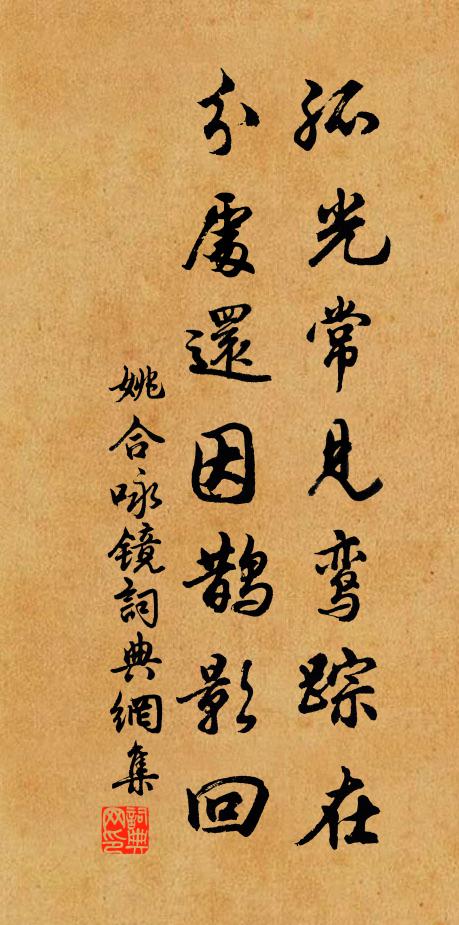 孤光常見鸾踪在
分處還因鵲影回
姚合咏镜詞典網集
詞典網印